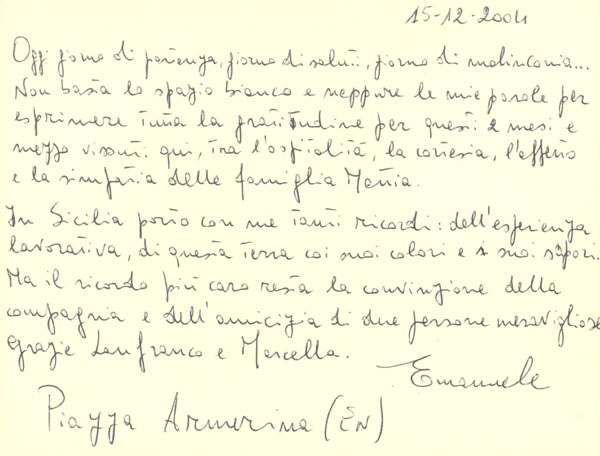 15-12-2004
Oggi giorno di partenza, giorno di saluti, giorno di malinconia...
Non basta lo spazio bianco e neppure le mie parole per
esprimere tutta la gratitudine per questi 2 mesi e
mezzo vissuti qui, tra l'ospitalità, la cortesia, l'affetto
e la simpatia della famiglia Mattia.
In Sicilia porto con me tanti ricordi: dell'esperienza
lavorativa, di questa terra coi suoi colori e i suoi sapori.
Ma il ricordo più caro resta la convinzione della
compagnia e dell'amicizia di due persone meravigliose
Grazie Lanfranco e Marcella.
Emanuele
Piazza Armerina (EN)